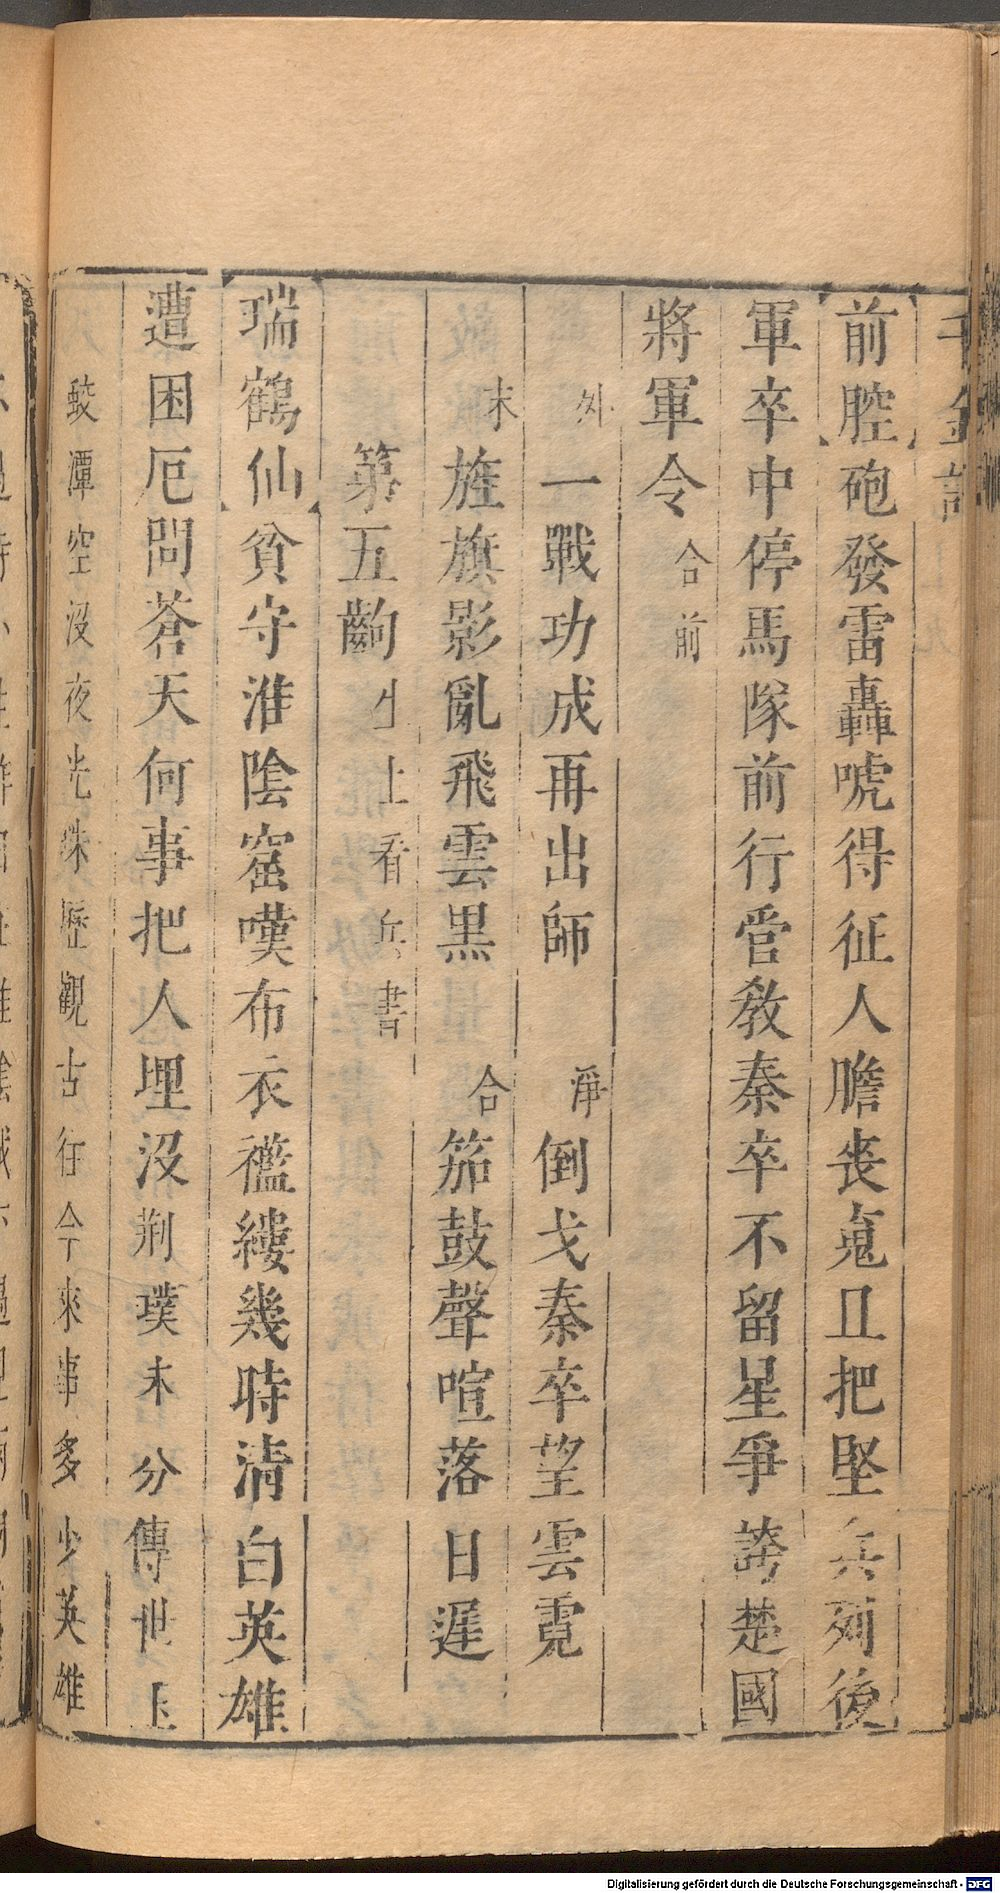 千金記
前腔砲發雷轟唬得征人膽喪䰟且把堅兵列後
軍卒中停馬隊前行營教秦卒不留星爭誇楚國
將軍令合前
外一戰功成再出師淨倒戈秦卒望雲霓
末旌旗影亂飛雲黑合笳鼓聲喧落日遲
第五齣生上看兵書
瑞鶴仙貧守淮陰窟嘆布衣襤縷幾時清白英雄
遭困厄問蒼天何事把人埋沒荆璞未分傳世玉
蛟潭空沒夜光珠歷觀古徃今來事多少英雄
Digitalisierung gefördert durch die Deutsche Forschungsgemeinschaft - DFG